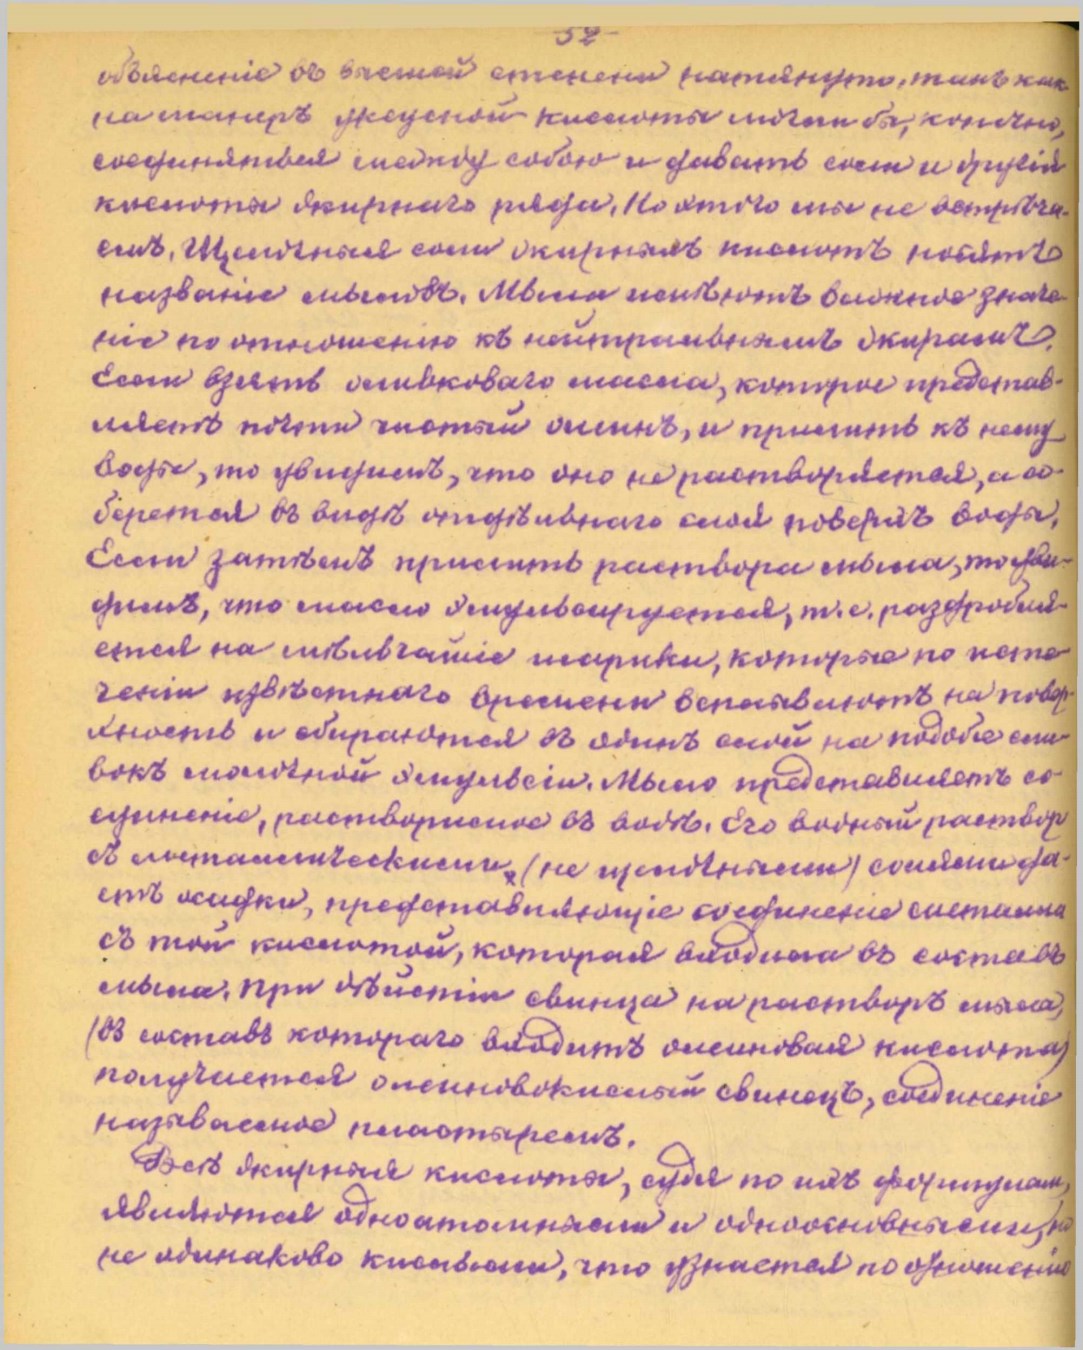 52
объясненіе въ высшей степени натянуто, такъ какъ
на манеръ уксусной кислоты могли бы, конечно,
соединяться между собою и давать соли и другія
кислоты жирнаго ряда. Но этого мы не встрѣча-
емъ. Щелочныя соли жирныхъ кислотъ носятъ
названіе мылъ. Мыла имѣютъ важное значе-
ніе по отношенію къ нейтральнымъ жирамъ.
Если взять оливковаго масла, которое представ-
ляетъ почти чистый олеинъ, и прилить къ нему
воды, то увидимъ, что оно не растворяется, а со-
берется въ видѣ отдѣльнаго слоя поверхъ воды.
Если затѣмъ прилить раствора мыла, то уви-
димъ, что масло эмульсируется, т.е. раздробля-
ется на мѣльчайшіе шарики, которые по исте-
ченіи извѣстнаго времени всплываютъ на повер-
хность и сбираются въ одинъ слой на подобіе сли-
вокъ молочной эмульсіи. Мыло представляетъ со-
единеніе, растворимое въ водѣ. Его водный раствор
съ металлическими (не щелочными) солями да-
етъ осадки, представляющіе соединеніе металла
съ той кислотой, которая входила въ составъ
мыла. При дѣйстіи свинца на растворъ мыла,
(въ составъ котораго входитъ олеиновая кислота)
получается олеиновокислый свинецъ, соединеніе
называемое пластыремъ.
Всѣ жирныя кислоты, судя по ихъ формулам,
являются одноатомными и одноосновными, но
не одинаково кислыми, что узнается по отношенію